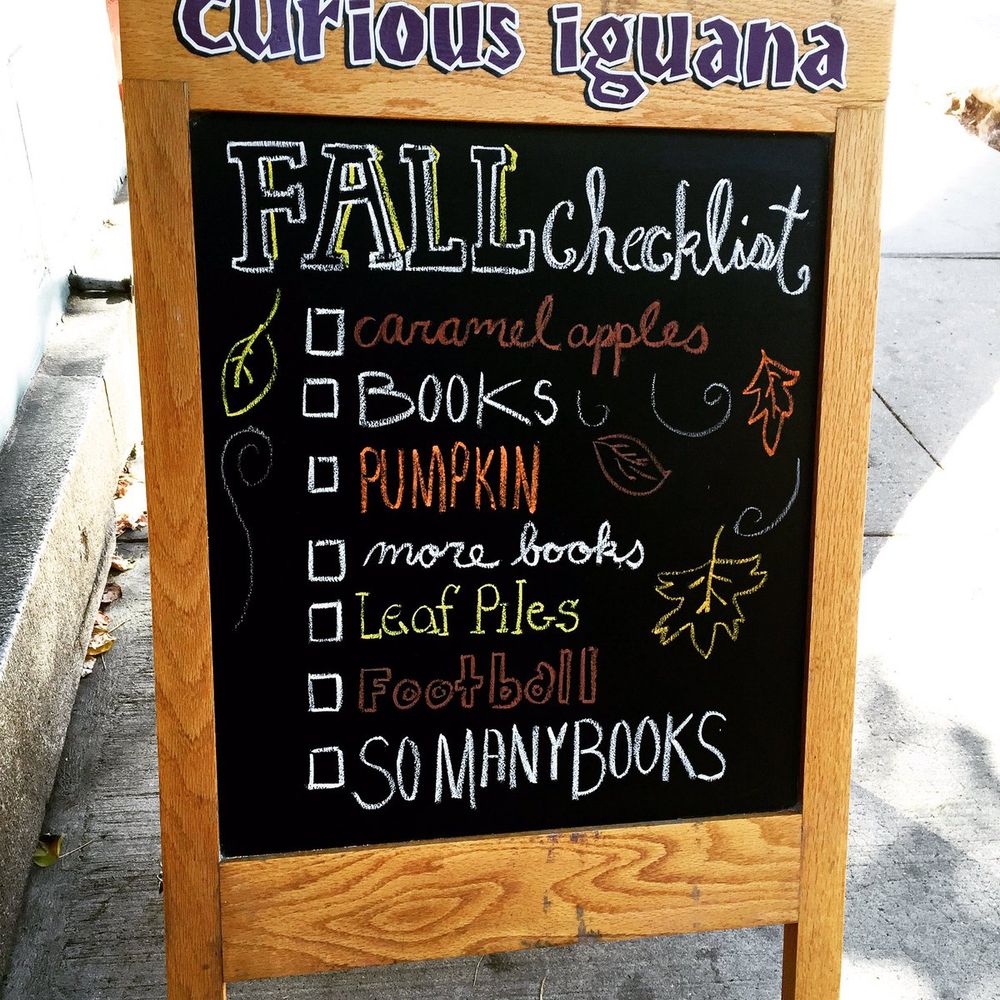 curious iguana
FALL checklist
caramel apples
BOOKS
PUMPKIN
more books
Leaf Piles
Football
SO MANY BOOKS